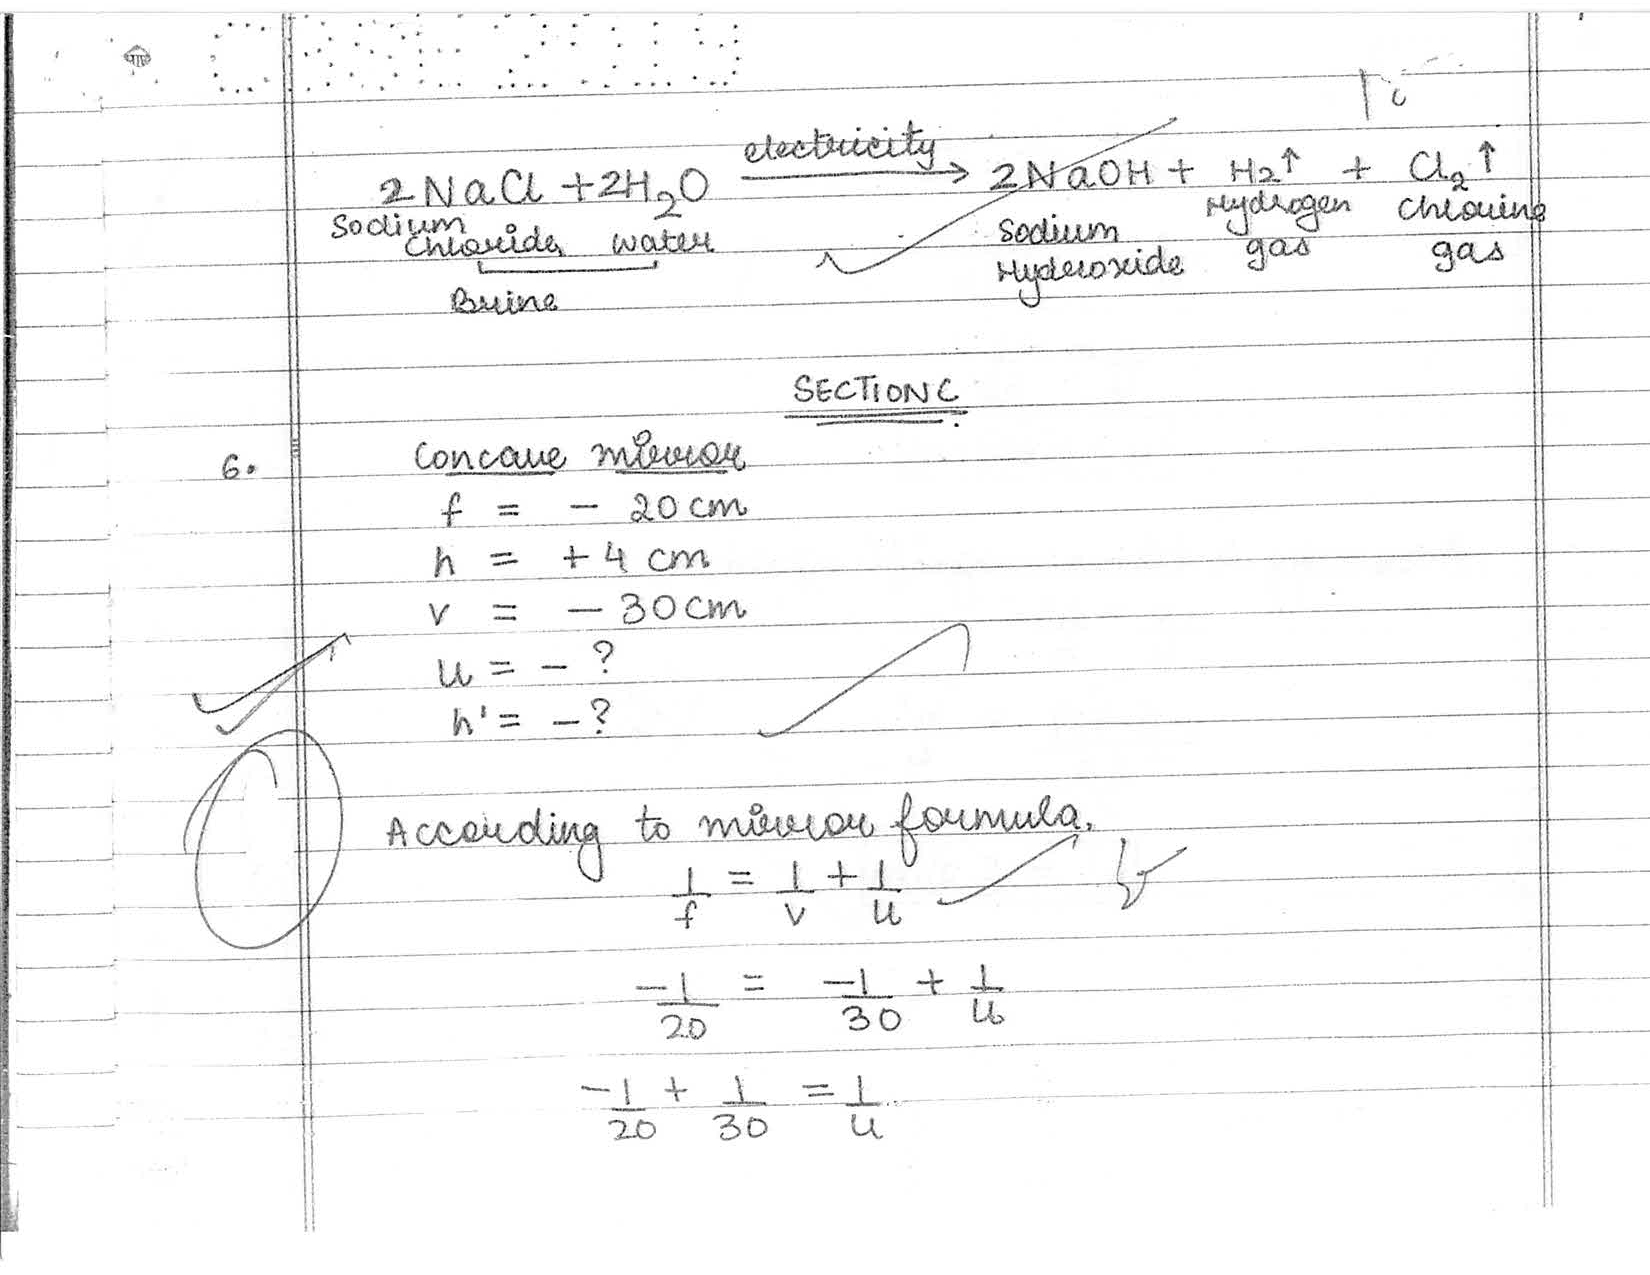 electricity
2NaCl + 2H₂O ⟶ 2NaOH + H₂↑ + Cl₂↑
Sodium Chloride water Sodium Hyderoxide Hydrogen gas Chlorine gas
Brine
SECTION C
6. Concave mirror
f = - 20 cm
h = + 4 cm
v = - 30 cm
u = - ?
h' = - ?
According to mirror formula,
1/f = 1/v + 1/u
-1/20 = -1/30 + 1/u
-1/20 + 1/30 = 1/u